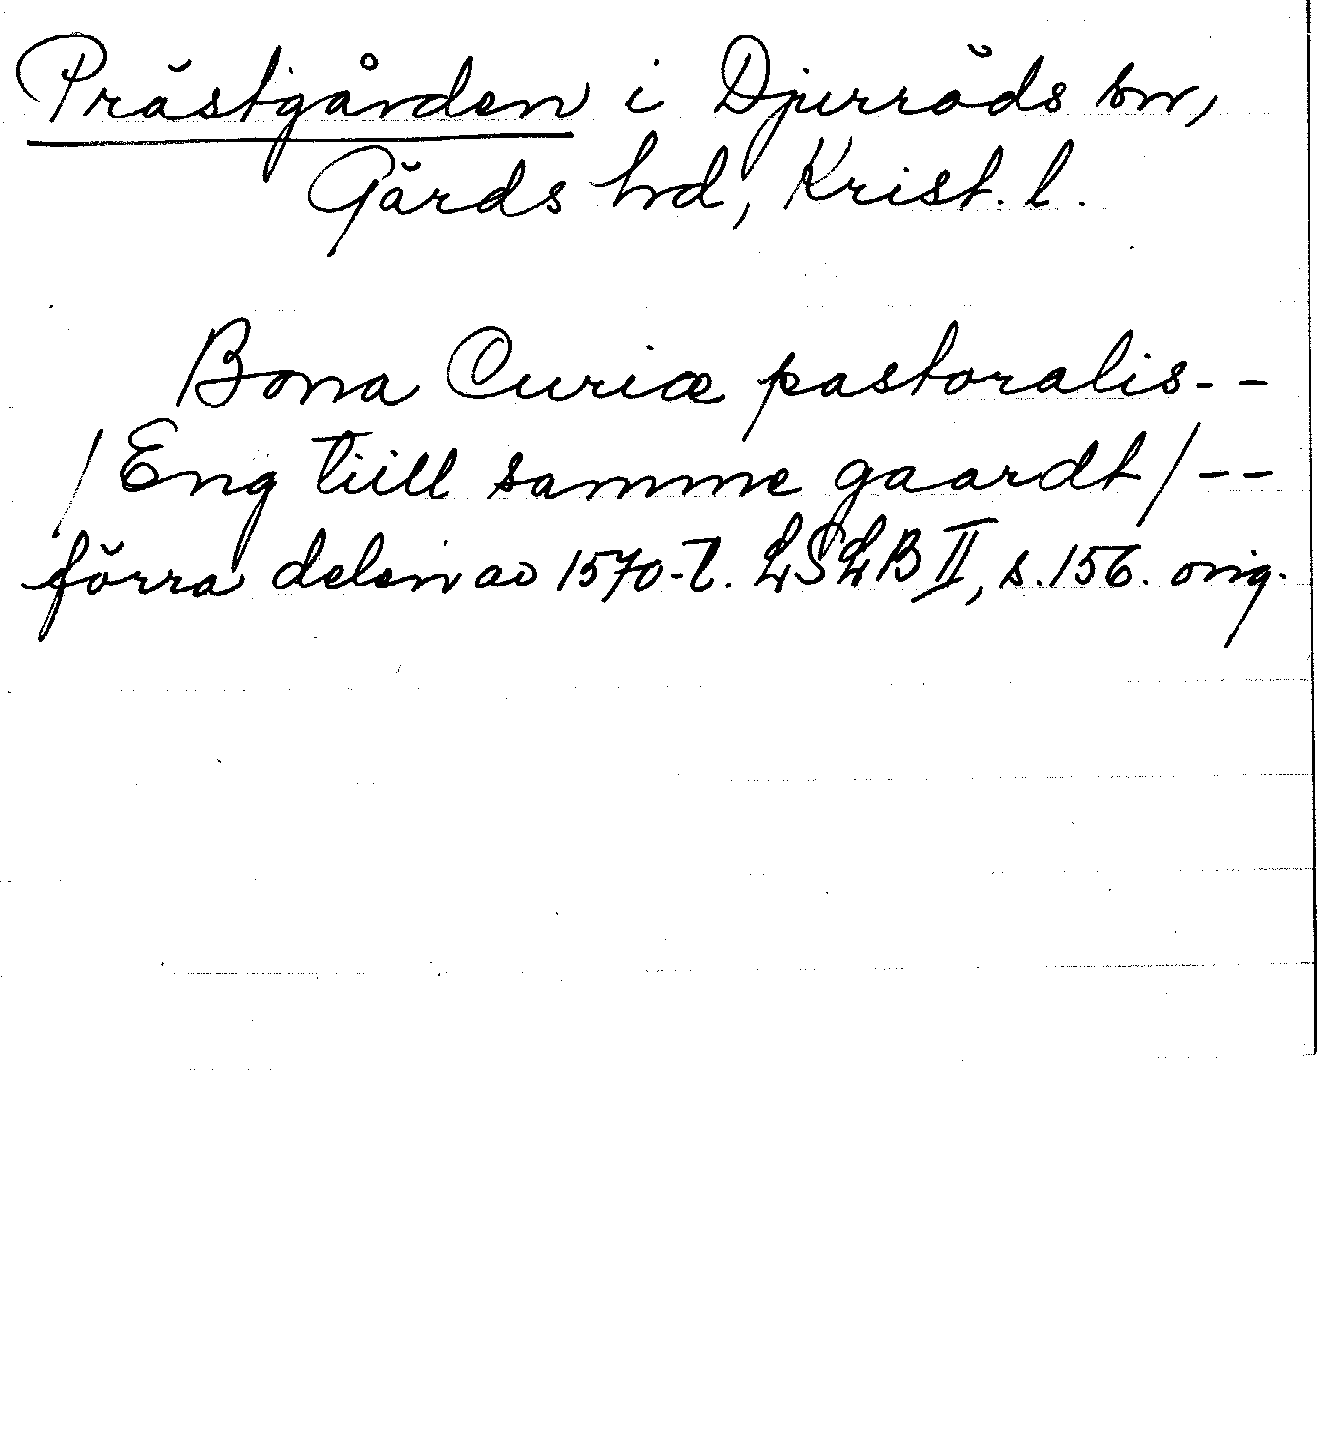 Prästgården i Djurröds sn,
Gärds hd, Krist. l.
Bona Curiæ pastoralis--
/Eng tiill samme gaardt/--
förra delen av 1570-t. LSLB II, s.156. orig.